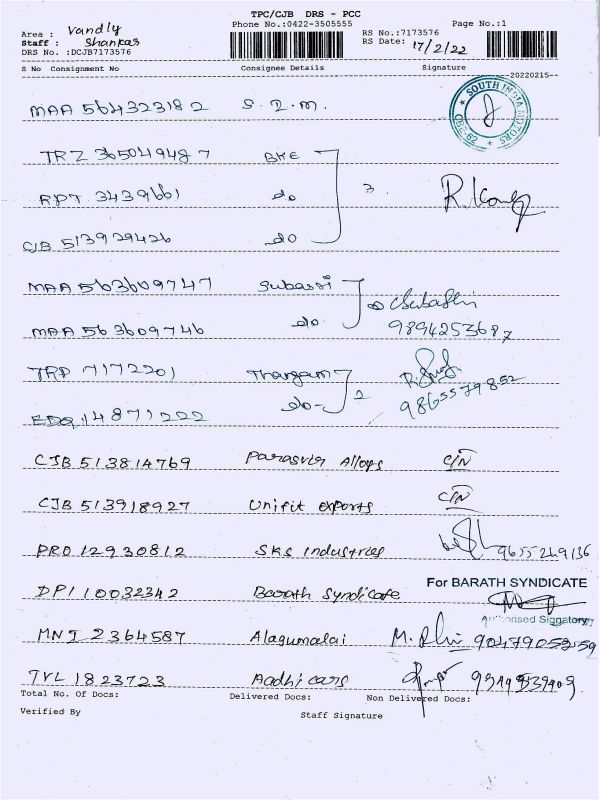 TPC/CJB DRS - PCC
Phone No.:0422-3505555
Page No.:1
Area : Vandly
Staff : Shankar
DRS No. :DCJB7173576
RS No.:7173576
RS Date: 17/2/22
S No Consignment No Consignee Details Signature
--20220215--
MAA 564323182 S.I.M.
SOUTH INDIA MOTORS
TRZ 365049487 BKE
RPT 3439661 do 3
CJB 513929426 do
MAA 563609747 Subassi
MAA 563609746 do 9894253687
TRP 7172201 Thangam
EDQ 14871222 do 2 9865579852
CJB 513814769 Parasvia Alloys C/N
CJB 513918927 Unifit exports C/N
PRO 12930812 SKS Industries 9655249136
For BARATH SYNDICATE
DPI 10032342 Barath Syndicate
Authorised Signatory
MNJ 2364587 Alagumalai 9047905259
TVL 1823723 Aadhi cars
Total No. Of Docs: Delivered Docs: Non Delivered Docs:
Verified By Staff Signature